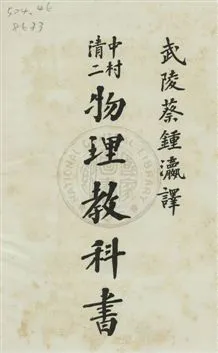 武陵蔡鍾瀛譯
中村清二
物理教科書